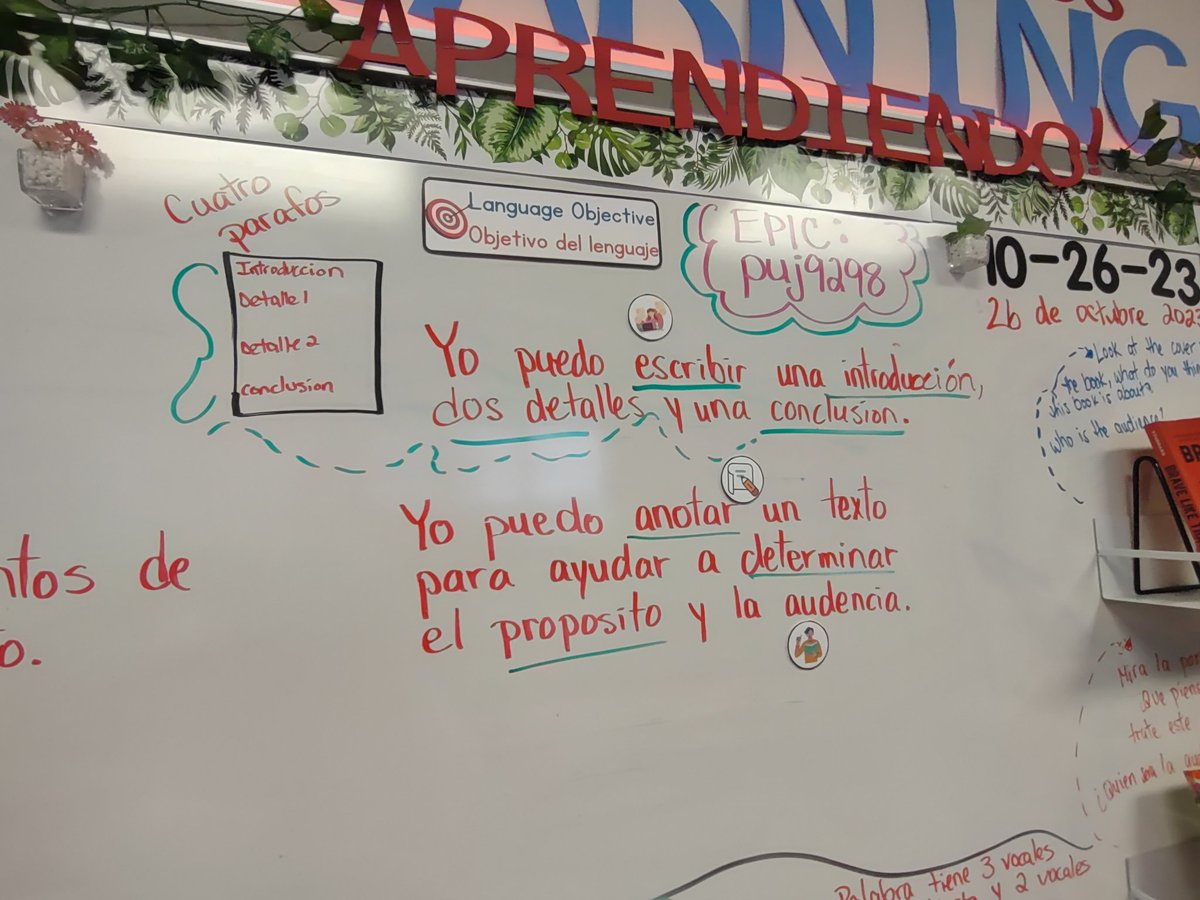 APRENDIENDO!
Cuatro
parafos
Introduccion
Detalle 1
Detalle 2
Conclusion
Language Objective
Objetivo del lenguaje
EPIC:
puj9298
10-26-23
26 de octubre 2023
Yo puedo escribir una introducción,
dos detalles y una conclusion.
Yo puedo anotar un texto
para ayudar a determinar
el proposito y la audencia.
de
Look at the cover
the book, what do you
this book is about?
who is the audience?
BRAVE LIKE
Mira la
Que
trate este
¿Quien sera la
Palabra tiene 3 vocales
y 2 vocales